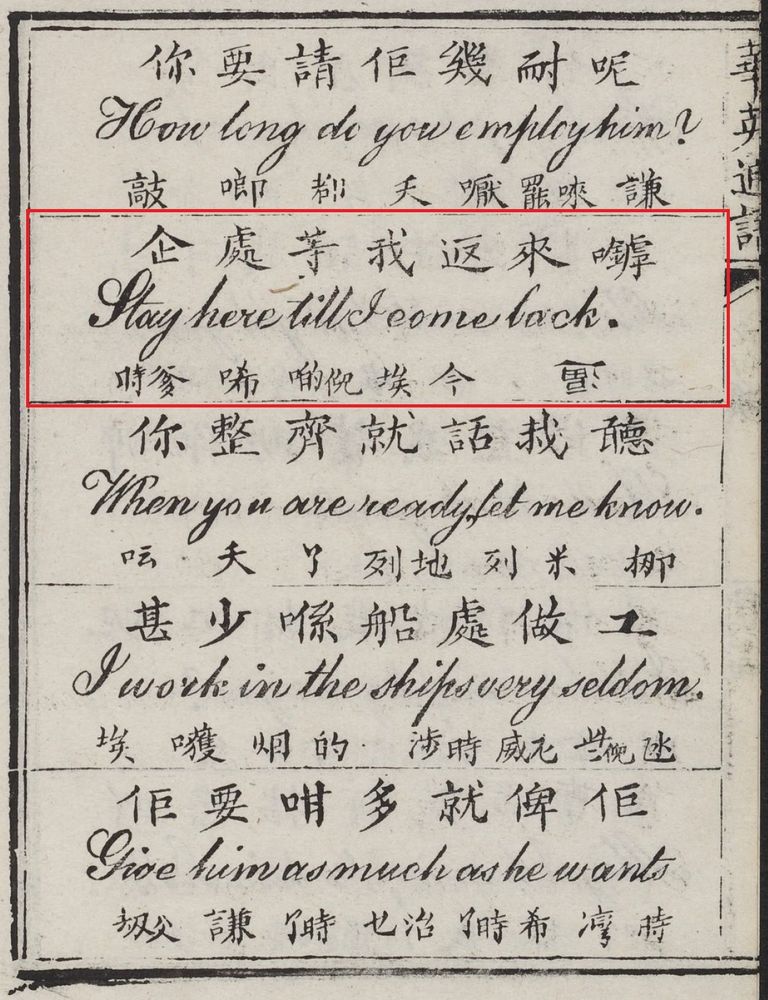 你要請佢幾耐呢
How long do you employ him?
敲 啷 都 天 嚈 罷 唻 謙
企處等我返來
Stay here till I come back.
時爹 唏 啲 埃 今
你整齊就話我聽
When you are ready, let me know.
呍 天 了 列地 列 米
甚少喺船處做工
I work in the ships very seldom.
埃 嚄 烟 的 涉時 威
佢要咁多就俾佢
Give him as much as he wants
謙 時 乜治 時 希 時
華英通語